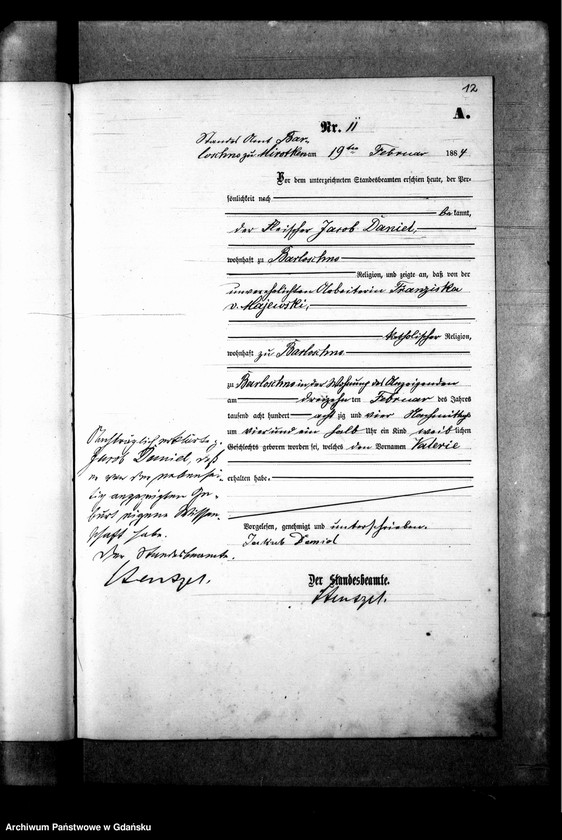 12
A.
Nr. 11
Standes Amt Bar-
loschno zu Mirotken am 19ten Februar 1884
Vor dem unterzeichneten Standesbeamten erschien heute, der Per-
sönlichkeit nach
bekannt,
der Fleischer Jacob Daniel,
wohnhaft zu Barloschno
Religion, und zeigte an, daß von der
unverehelichten Arbeiterin Franziska
v. Majewski,
katholischer Religion,
wohnhaft zu Barloschno
zu Barloschno in der Wohnung des Anzeigenden
am dreizehnten Februar des Jahres
tausend acht hundert achtzig und vier Nachmittags
um vier und ein halb Uhr ein Kind weiblichen
Geschlechts geboren worden sei, welches den Vornamen Valerie
erhalten habe.
Vorgelesen, genehmigt und unterschrieben.
Jakub Daniel
Der Standesbeamte.
Stenzel.
Nachträglich erklärte p.
Jacob Daniel, daß
er von der nebensei-
tig angezeigten Ge-
burt eigene Wissen-
schaft habe.
Der Standesbeamte.
Stenzel.
Archiwum Państwowe w Gdańsku